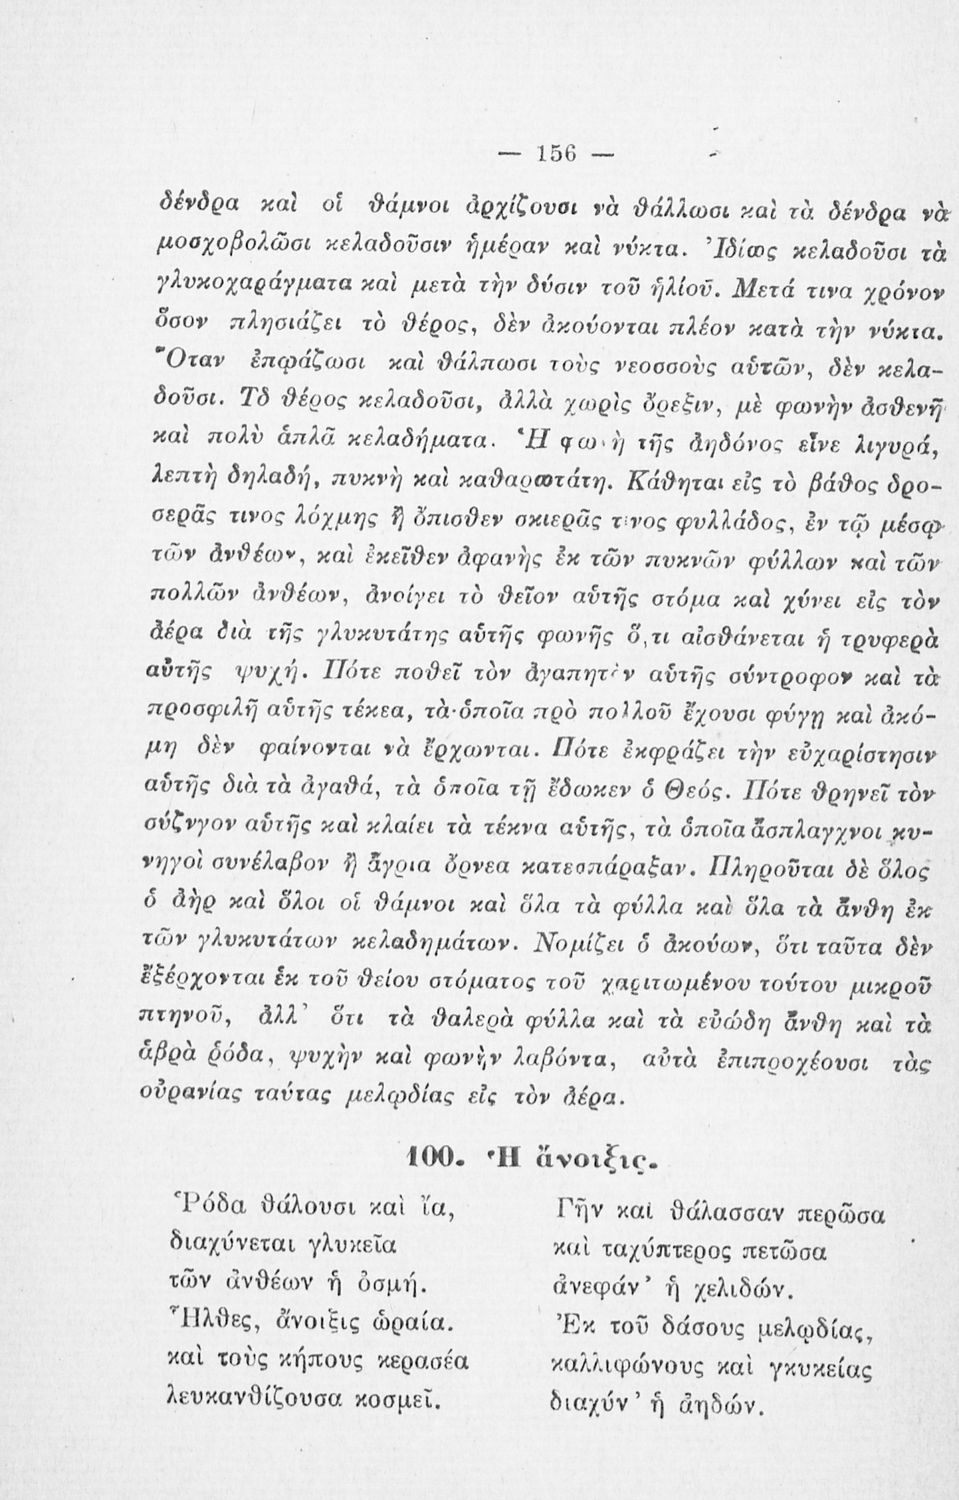 — 156 —
δένδρα καὶ οἱ θάμνοι ἀρχίζουσι νὰ θάλλωσι καὶ τὰ δένδρα νὰ
μοσχοβολῶσι κελαδοῦσιν ἡμέραν καὶ νύκτα. Ἰδίως κελαδοῦσι τὰ
γλυκοχαράγματα καὶ μετὰ τὴν δύσιν τοῦ ἡλίου. Μετά τινα χρόνον
ὅσον πλησιάζει τὸ θέρος, δὲν ἀκούονται πλέον κατὰ τὴν νύκτα.
Ὅταν ἐπῳάζωσι καὶ θάλπωσι τοὺς νεοσσοὺς αὑτῶν, δὲν κελα-
δοῦσι. Τὸ θέρος κελαδοῦσι, ἀλλὰ χωρὶς ὄρεξιν, μὲ φωνὴν ἀσθενῆ
καὶ πολὺ ἁπλᾶ κελαδήματα. Ἡ φωνὴ τῆς ἀηδόνος εἶνε λιγυρά,
λεπτὴ δηλαδή, πυκνὴ καὶ καθαρωτάτη. Κάθηται εἰς τὸ βάθος δρο-
σερᾶς τινος λόχμης ἢ ὄπισθεν σκιερᾶς τινος φυλλάδος, ἐν τῷ μέσῳ
τῶν ἀνθέων, καὶ ἐκεῖθεν ἀφανὴς ἐκ τῶν πυκνῶν φύλλων καὶ τῶν
πολλῶν ἀνθέων, ἀνοίγει τὸ θεῖον αὑτῆς στόμα καὶ χύνει εἰς τὸν
ἀέρα διὰ τῆς γλυκυτάτης αὑτῆς φωνῆς ὅ,τι αἰσθάνεται ἡ τρυφερὰ
αὐτῆς ψυχή. Πότε ποθεῖ τὸν ἀγαπητὸν αὑτῆς σύντροφον καὶ τὰ
προσφιλῆ αὑτῆς τέκεα, τὰ ὁποῖα πρὸ πολλοῦ ἔχουσι φύγῃ καὶ ἀκό-
μη δὲν φαίνονται νὰ ἔρχωνται. Πότε ἐκφράζει τὴν εὐχαρίστησιν
αὑτῆς διὰ τὰ ἀγαθά, τὰ ὁποῖα τῇ ἔδωκεν ὁ Θεός. Πότε θρηνεῖ τὸν
σύζυγον αὑτῆς καὶ κλαίει τὰ τέκνα αὑτῆς, τὰ ὁποῖα ἄσπλαγχνοι κυ-
νηγοὶ συνέλαβον ἢ ἄγρια ὄρνεα κατεσπάραξαν. Πληροῦται δὲ ὅλος
ὁ ἀὴρ καὶ ὅλοι οἱ θάμνοι καὶ ὅλα τὰ φύλλα καὶ ὅλα τὰ ἄνθη ἐκ
τῶν γλυκυτάτων κελαδημάτων. Νομίζει ὁ ἀκούων, ὅτι ταῦτα δὲν
ἐξέρχονται ἐκ τοῦ θείου στόματος τοῦ χαριτωμένου τούτου μικροῦ
πτηνοῦ, ἀλλ' ὅτι τὰ θαλερὰ φύλλα καὶ τὰ εὐώδη ἄνθη καὶ τὰ
ἁβρὰ ῥόδα, ψυχὴν καὶ φωνὴν λαβόντα, αὐτὰ ἐπιπροχέουσι τὰς
οὐρανίας ταύτας μελῳδίας εἰς τὸν ἀέρα.
100. Ἡ ἄνοιξις.
Ῥόδα θάλουσι καὶ ἴα,
διαχύνεται γλυκεῖα
τῶν ἀνθέων ἡ ὀσμή.
Ἦλθες, ἄνοιξις ὡραία.
καὶ τοὺς κήπους κερασέα
λευκανθίζουσα κοσμεῖ.
Γῆν καὶ θάλασσαν περῶσα
καὶ ταχύπτερος πετῶσα
ἀνεφάν' ἡ χελιδών.
Ἐκ τοῦ δάσους μελῳδίας,
καλλιφώνους καὶ γκυκείας
διαχύν' ἡ ἀηδών.